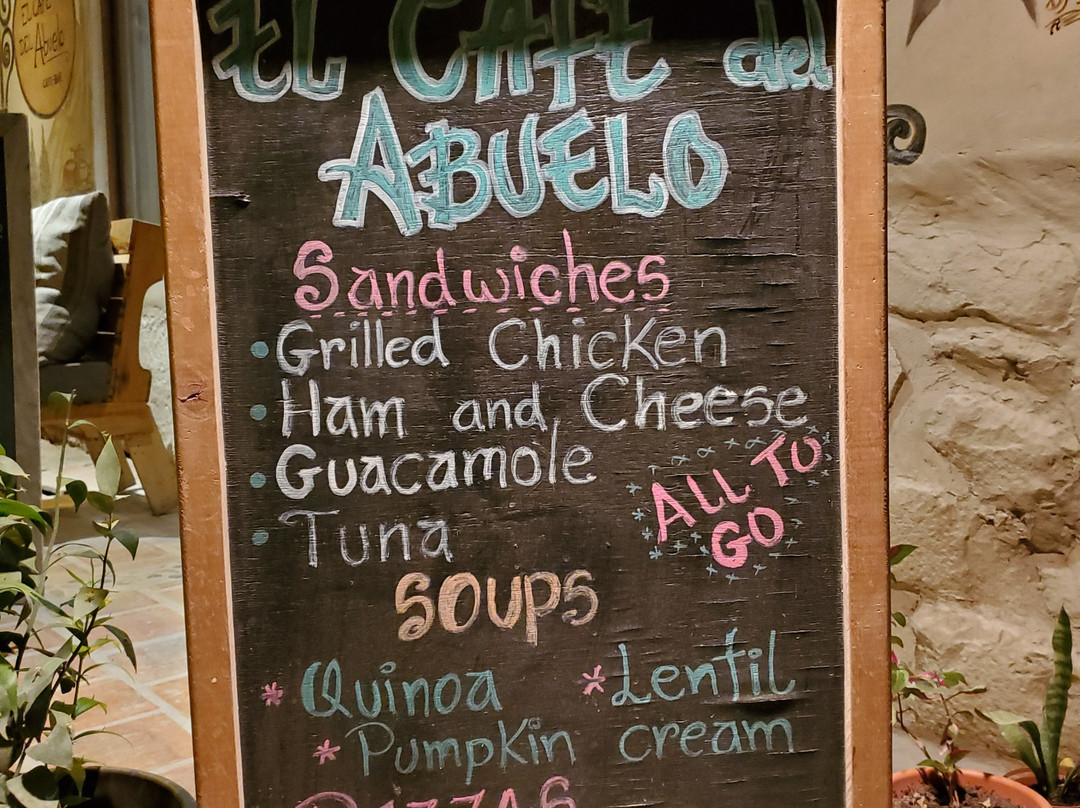 EL CAFÉ
DEL
Abuelo
EL CAFE del
ABUELO
Sandwiches
• Grilled Chicken
• Ham and Cheese
• Guacamole
• Tuna
ALL TO
GO
SOUPS
* Quinoa * Lentil
* Pumpkin cream
PIZZAS